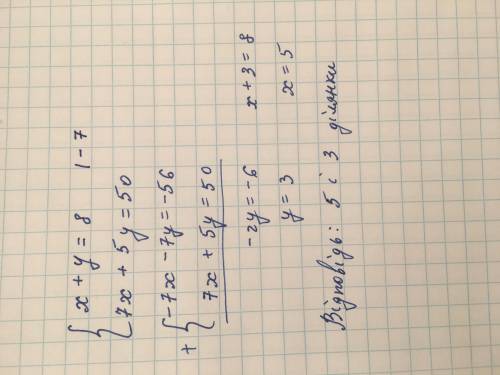 x + y = 8 | -7
7x + 5y = 50
-7x - 7y = -56
+
7x + 5y = 50
-2y = -6 x + 3 = 8
y = 3 x = 5
Відповідь: 5 і 3 ділянки